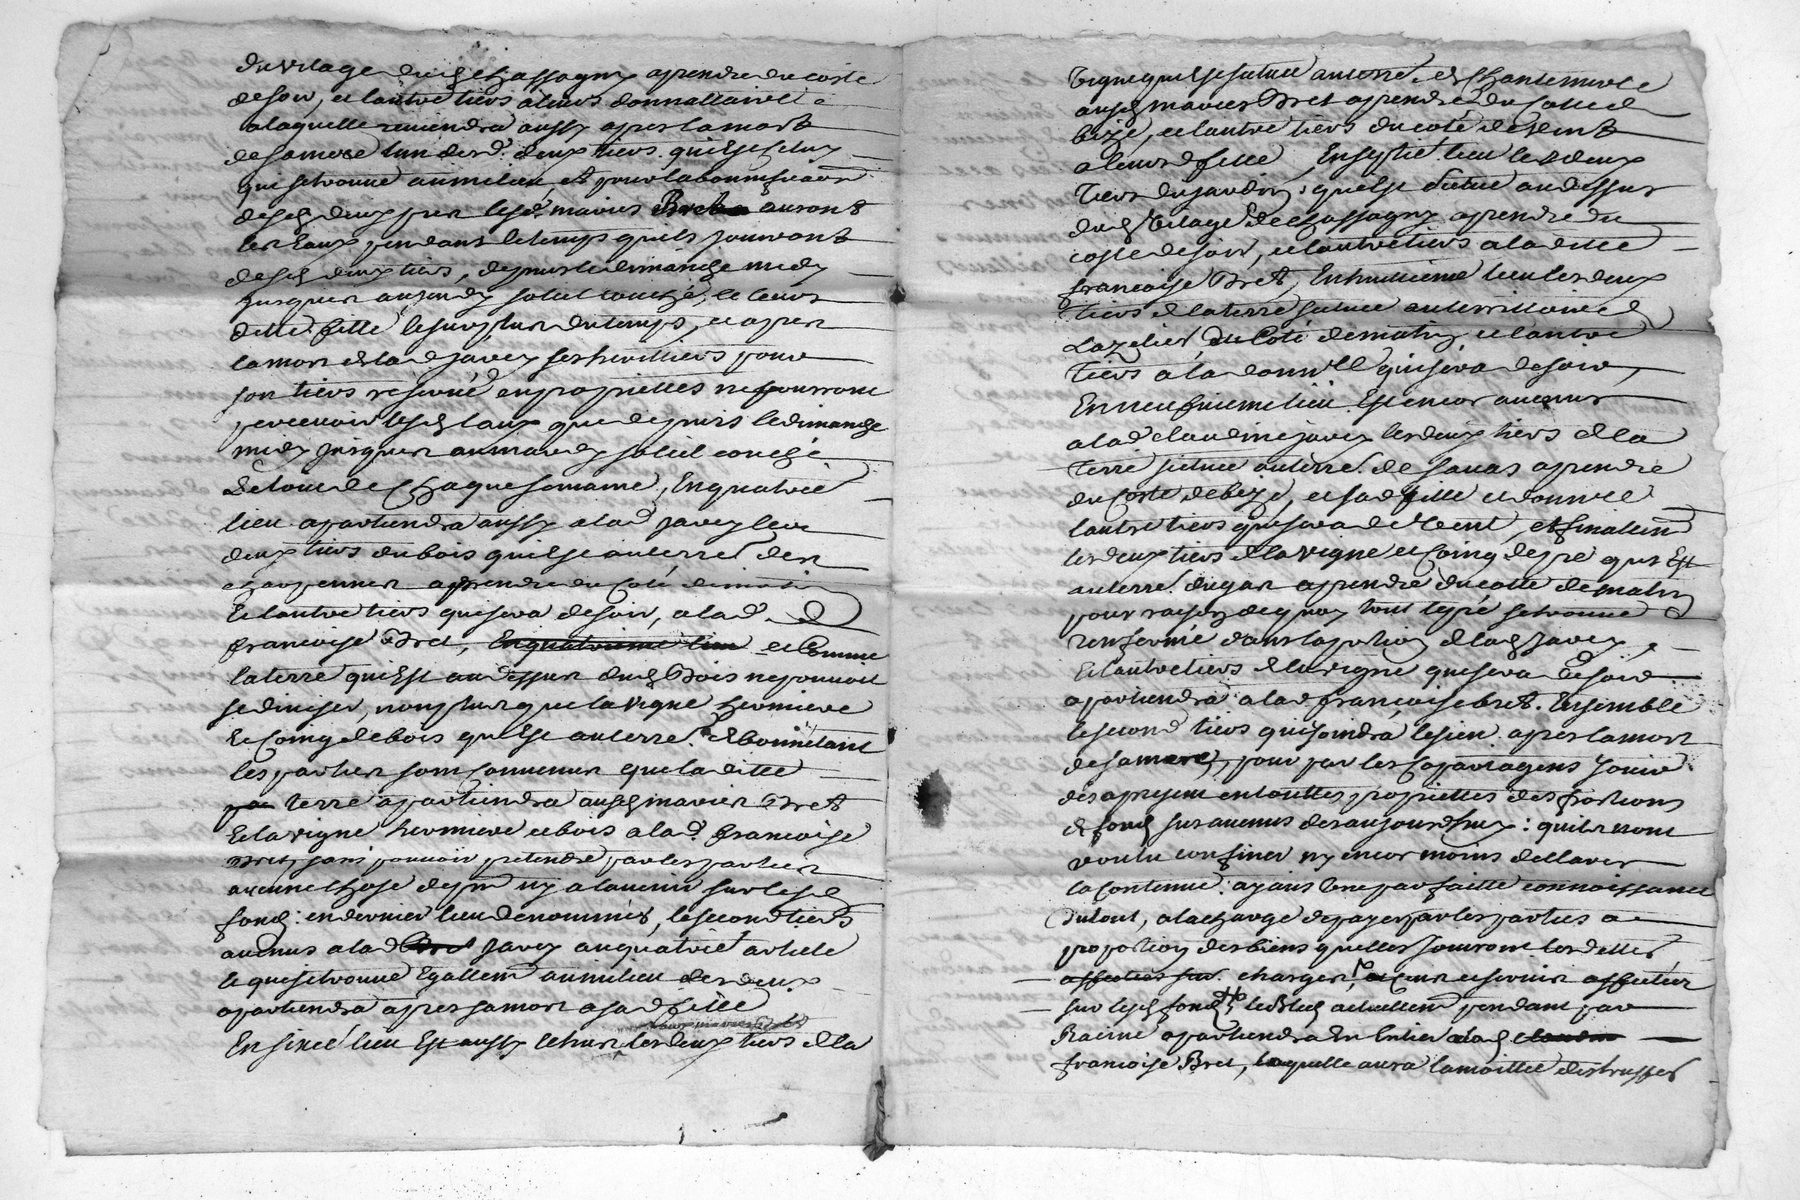 du vilage dud Chassagny aprendre du coste
de soir, et lautre tiers a leurs donnattaire
a laquelle reviendra aussy apres la mort
de sa mere lun desd. deux tiers qui est celuy
qui se trouve au milieu, et pour la bonnification
desd deux pres lesd. mariés Bret auront
les Eaux pendant le temps quels jouiront
desd deux tiers, depuis le dimanche midy
jusques au jeudy soleil couché, et leurs
ditte fille le surplus du temps, et apres
la mort de lad javey ses heritiers pour
son tiers reservé en proprietté ne pourront
percevoir lesd Eaux que depuis le dimanche
midy jusques au mardy soleil couché
de chaque semaine, En quatrie
lieu apartiendra aussy a lad javey les
deux tiers du bois qui est au terre des
aprendre du Coté de matin
Et lautre tiers qui sera de soir, a lad
francoise Bret, En quatrieme lieu et Comme
la terre qui Est au dessus dud Bois ne pouvoit
se diviser, non plus que la vigne hermiere
Et Coing de bois qui Est au terre
les parties sont convenus que la ditte
terre apartiendra ausd mariés Bret
Et la vigne hermiere et bois a lad. francoise
Bret sans pouvoir pretendre par les parties
aucune chose de plus ny a lavenir sur lesd
fond: en dernier lieu denommés, le second tiers
avenus a lad Bret javey au quatrie article
et qui se trouve Egallem au milieu des deux
apartiendra apres sa mort a sa d fille
En sixie lieu Est aussy Echeu les deux tiers de la
vigne qui est situee au terre de Chantemerle
ausd mariés Bret aprendre du Cotte de
bize, et lautre tiers du coté de vent
a leurs d fille, En septie lieu les deux
tiers du jardin, quel est situé au dessus
dud vilage de Chassagny aprendre du
coste de soir, et lautre tiers a la ditte
francoise Bret, En huitieme lieu les deux
tiers de la terre situee au territtoire de
Lazelier du Coté de matin, et lautre
tiers a la donn qui sera de soir,
En neufvieme lieu Est encor avenus
a lad claudine javey les deux tiers de la
terre situee au terre. de savas aprendre
du Coste de bize, et sad fille et donn
lautre tiers qui sera de Vent, et finallem
les deux tiers de la vigne et Coing de pre qui Est
au terre. dugar aprendre du cotte de matin
pour raison de quoy tout le pré se trouve
renfermé dans la portion de lad Javey,
Et lautre tiers de la vigne qui sera de soir
apartiendra a lad francoise bret. Ensemble
le second tiers qui joindra le sien apres la mort
de sa mere, pour par les copartagens Jouir
des apresent en touttes proprietes des portions
de fond sus avenus des aujourdhuy: qu'ils nont
voulu confiner ny encor moins declarer
la Contenue: ayant Une parfaitte connoissance
du tout, a la charge de payer par les parties a
proportion des biens quelles Jouiront les dettes
affecties sur charges, et servis affecter
sur lesd fond, pendant par
Racine apartiendra En Entier a lad Claudin
francoise Bret, laquelle aura la moittié des truffes